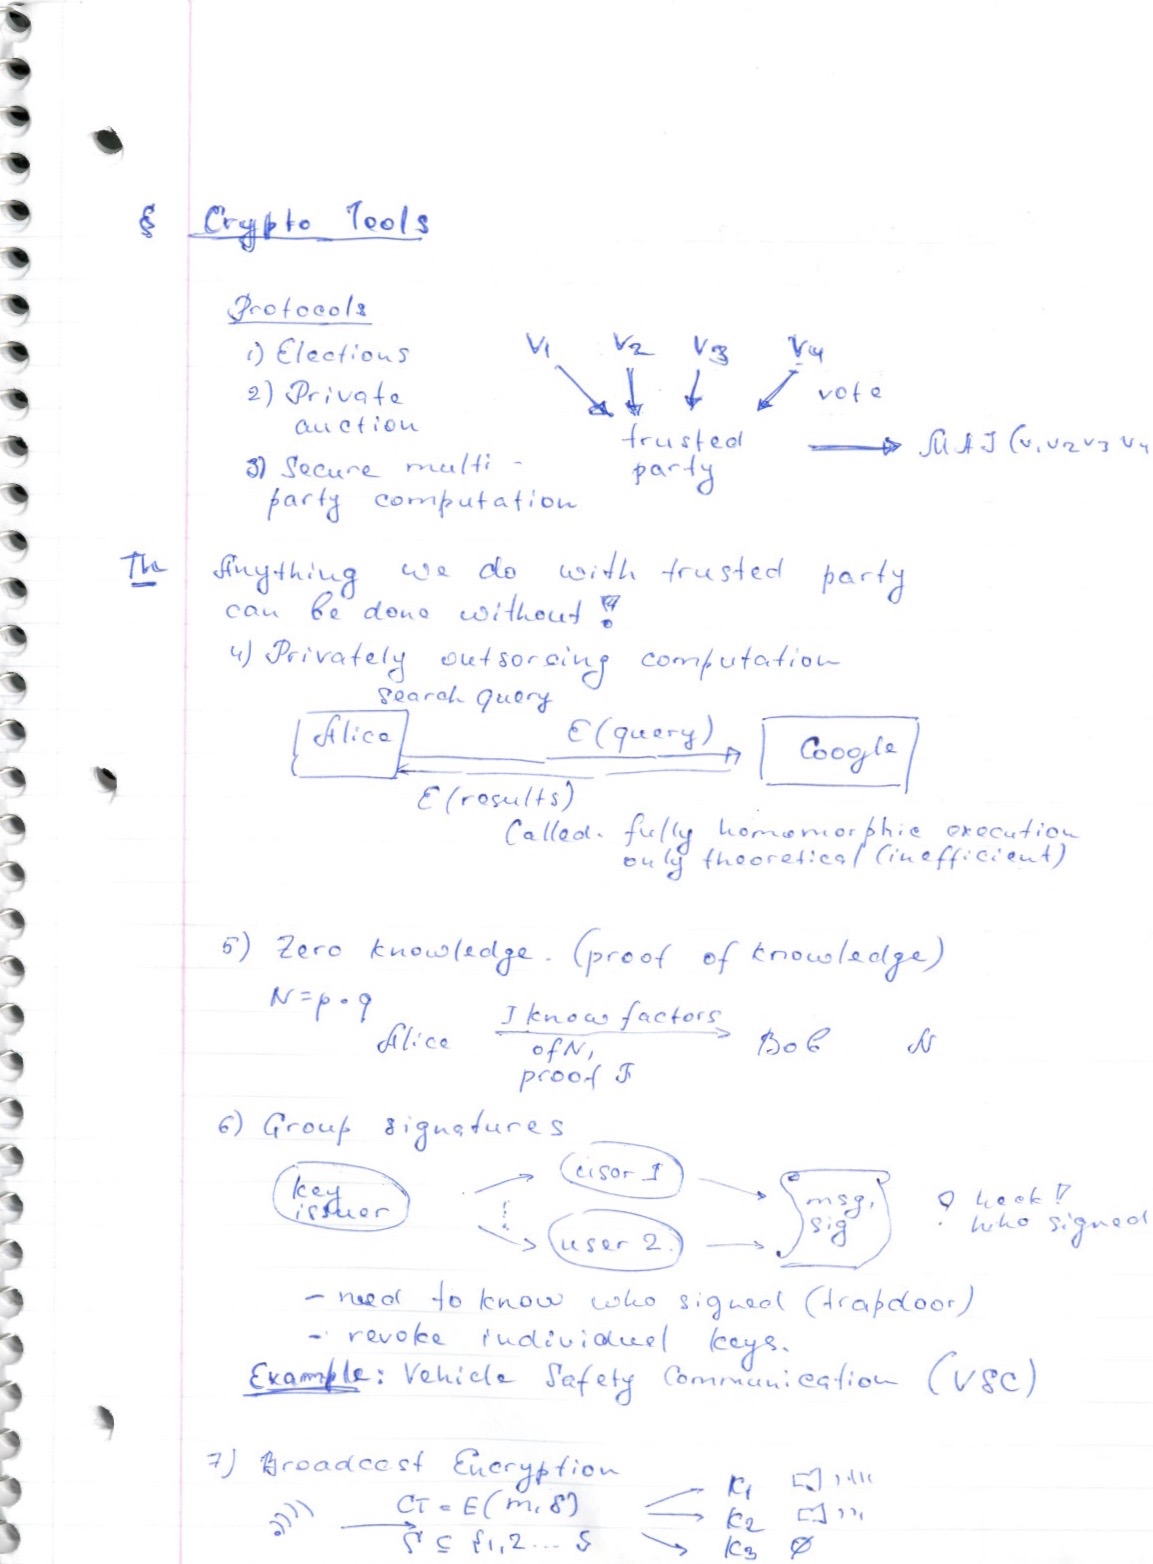 § Crypto Tools
Protocols
1) Elections
2) Private
auction
3) Secure multi -
party computation
V1 V2 V3 V4
vote
trusted
party
MAJ (v1 v2 v3 v4
Th Anything we do with trusted party
can be done without !
4) Privately outsorcing computation
search query
Alice
E(query)
Google
E(results)
Called. fully homomorphic execution
only theoretical (inefficient)
5) Zero knowledge. (proof of knowledge)
N = p · q
Alice
I know factors
of N,
proof
Bob N
6) Group signatures
key
issuer
user 1
user 2.
msg,
sig
? heck!?
who signed
- need to know who signed (trapdoor)
- revoke individuel keys.
Example: Vehicle Safety Communication (VSC)
7) Broadcast Encryption
CT = E(m, S)
S ⊆ {1, 2 ... }
K1
K2
K3 ∅